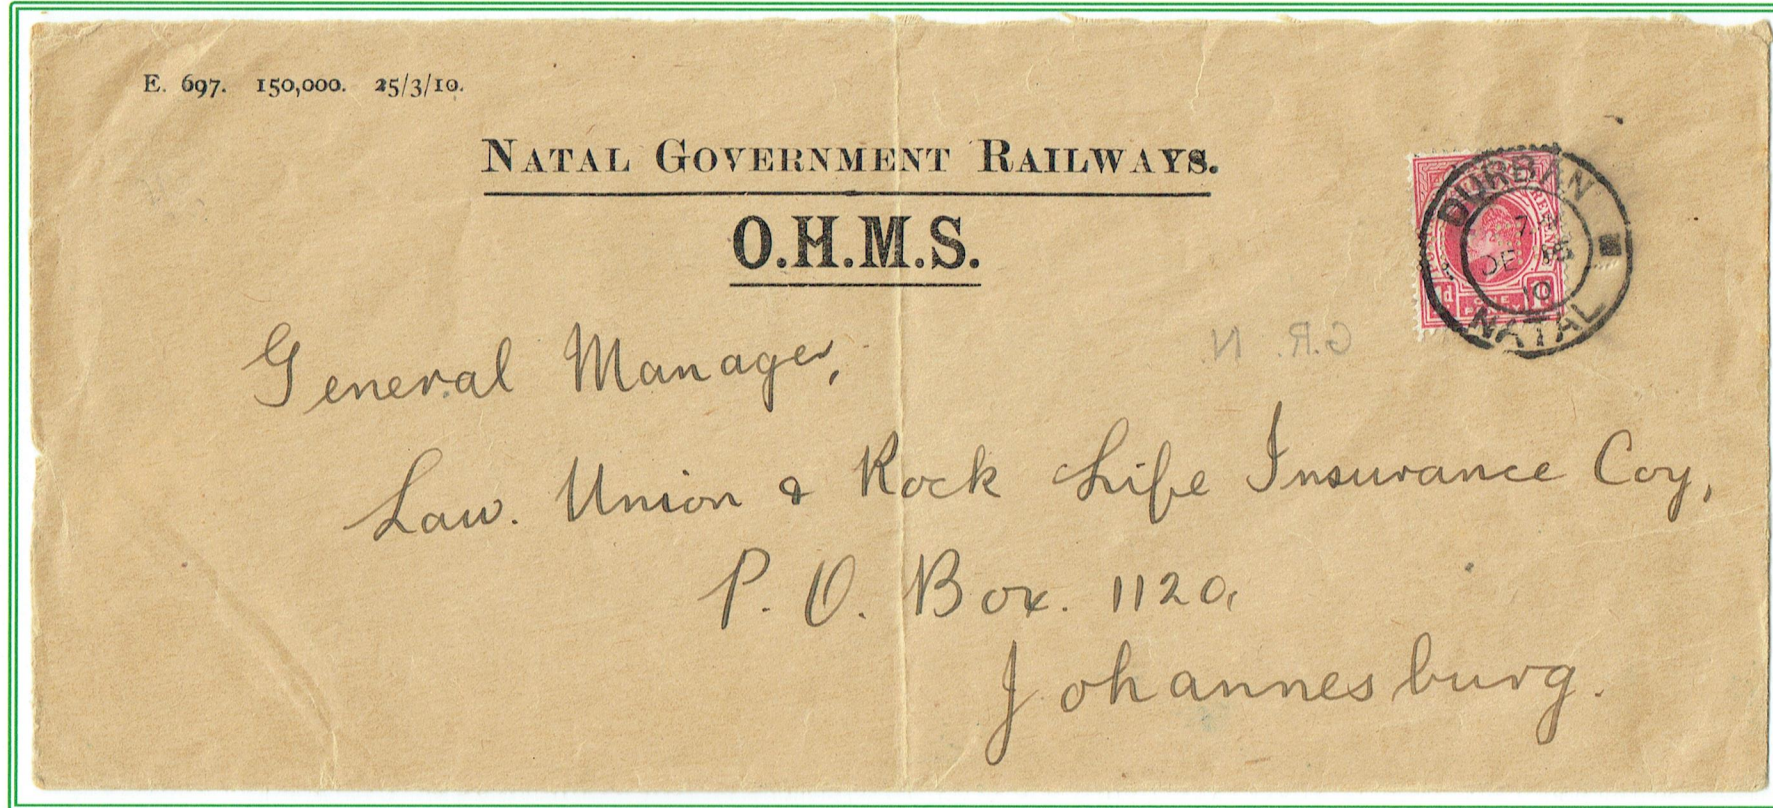 E. 697. 150,000. 25/3/10.
NATAL GOVERNMENT RAILWAYS.
O.H.M.S.
DURBAN
DE 15
10
NATAL
G.R. N.
General Manager,
Law. Union & Rock Life Insurance Coy,
P. O. Box. 1120,
Johannesburg.